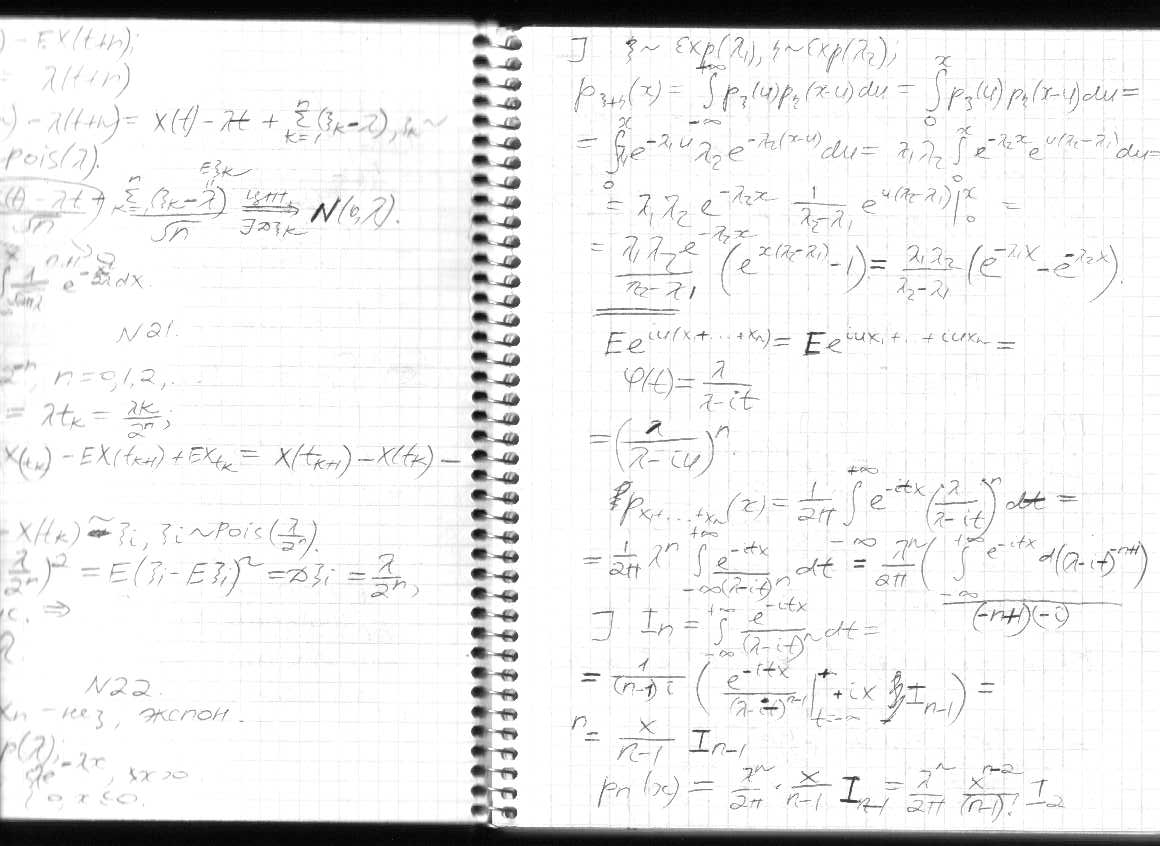 ) - EX(t+n);
= λ(t+n)
) - λ(t+n) = X(t) - λt + ∑_{k=1}^{n}(ξ_k - λ), ξ_k ~
Pois(λ).
(t) - λt + ∑_{k=1}^{n}(ξ_k - λ)/√n ⟹ N(0, λ).
Eξ_k
∃Dξ_k
N21.
2^{-n}, n = 0,1,2,...
= λt_k = λk/2^n;
X(t_k) - EX(t_{k+1}) + EX_{t_k} = X(t_{k+1}) - X(t_k) -
- X(t_k) ~ ξ_i, ξ_i ~ Pois(λ/2^n).
λ/2^n)^2 = E(ξ_i - Eξ_i)^2 = Dξ_i = λ/2^n,
⇒
N22.
x_n - нез, экспон.
p(λ);
λe^{-λx}, x>0
0, x≤0.
] ξ ~ Exp(λ_1), η ~ Exp(λ_2);
p_{ξ+η}(x) = ∫_{-∞}^{+∞} p_ξ(u) p_η(x-u) du = ∫_0^x p_ξ(u) p_η(x-u) du =
= ∫_0^x λ_1 e^{-λ_1 u} λ_2 e^{-λ_2(x-u)} du = λ_1 λ_2 ∫_0^x e^{-λ_2 x} e^{u(λ_2-λ_1)} du =
= λ_1 λ_2 e^{-λ_2 x} 1/(λ_2-λ_1) e^{u(λ_2-λ_1)} |_0^x =
= λ_1 λ_2 e^{-λ_2 x}/(λ_2-λ_1) (e^{x(λ_2-λ_1)} - 1) = λ_1 λ_2/(λ_2-λ_1) (e^{-λ_1 x} - e^{-λ_2 x}).
Ee^{iu(x_1+...+x_n)} = Ee^{iux_1+...+iux_n} =
φ(t) = λ/(λ-it)
= (λ/(λ-iu))^n.
p_{x_1+...+x_n}(x) = 1/2π ∫_{-∞}^{+∞} e^{-itx} (λ/(λ-it))^n dt =
= 1/2π λ^n ∫_{-∞}^{+∞} e^{-itx}/(λ-it)^n dt = λ^n/2π (∫_{-∞}^{+∞} e^{-itx} d(λ-it)^{-n+1})/((-n+1)(-i))
] I_n = ∫_{-∞}^{+∞} e^{-itx}/(λ-it)^n dt =
= 1/((n-1)i) (e^{-itx}/(λ-it)^{n-1} |_{t=-∞}^{+} + ix I_{n-1}) =
= x/(n-1) I_{n-1}
p_n(x) = λ^n/2π · x/(n-1) I_{n-1} = λ^n/2π x^{n-2}/(n-1)! I_2